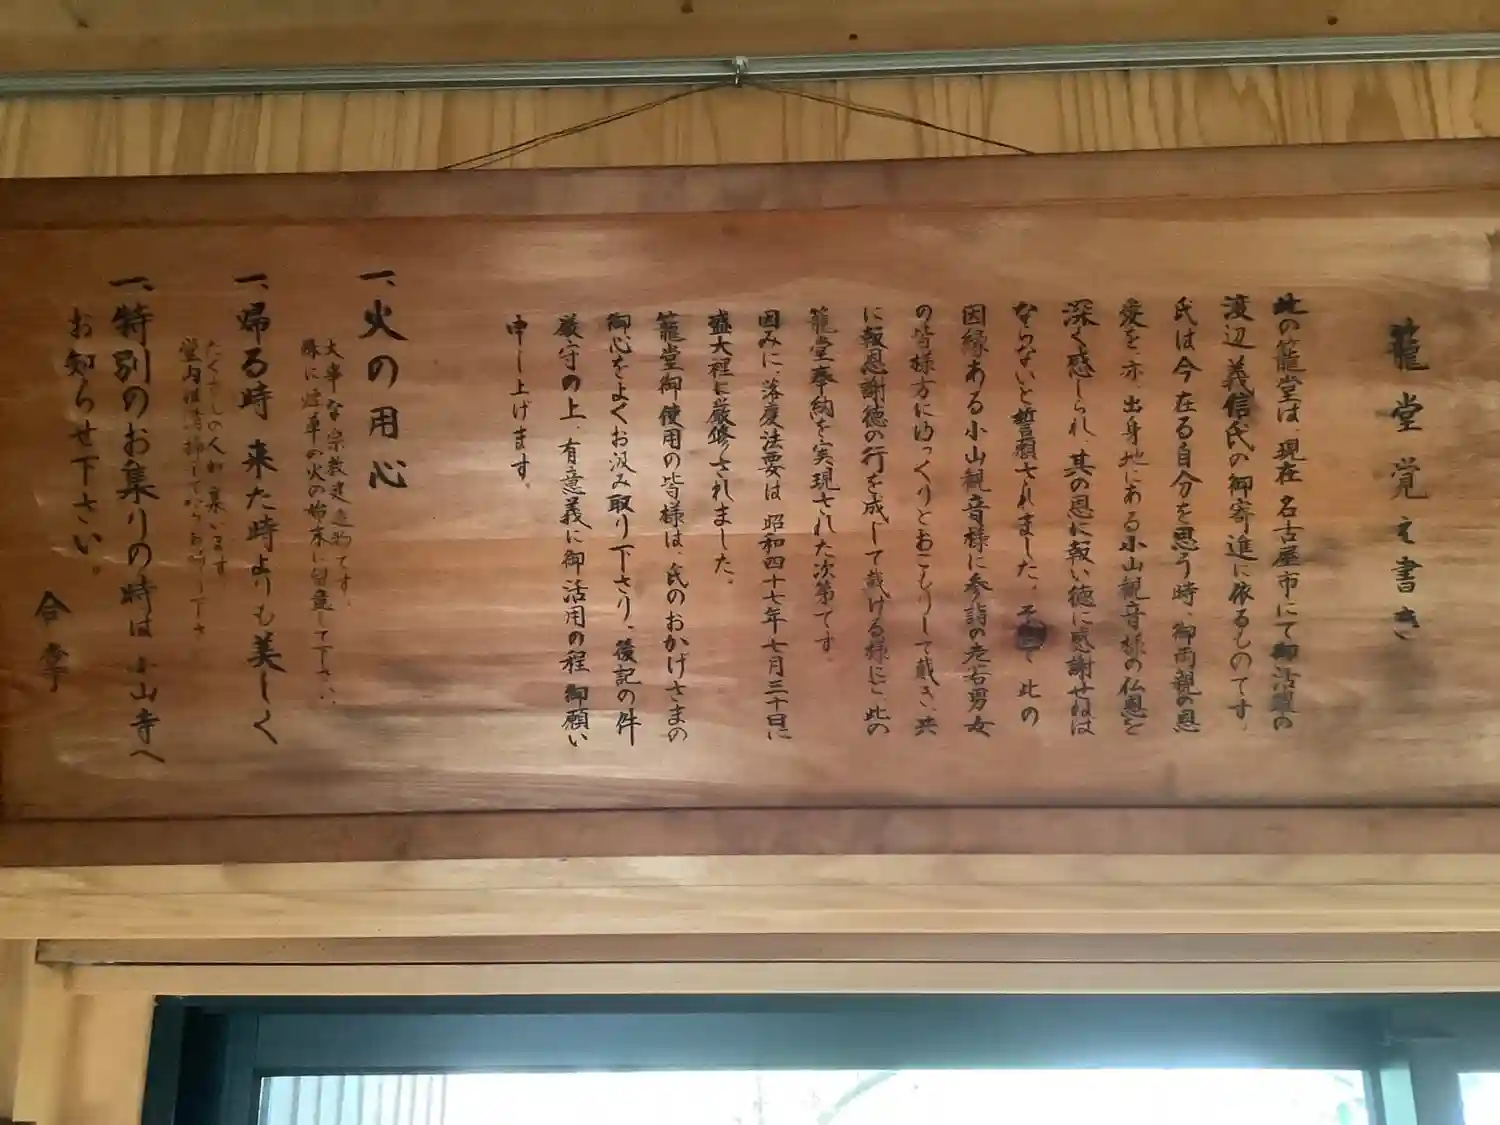 籠堂覚之書き
此の籠堂は、現在 名古屋市にて御活躍の
渡辺 義信氏の御寄進に依るものです。
氏は今 在る自分を思う時、御両親の恩
愛を、亦、出身地にある小山観音様の仏恩を
深く感じられ、其の恩に報い徳に感謝せねは
ならないと誓願されました。 此の
因縁ある小山観音様に参詣の老若男女
の皆様方にゆっくりとおこもりして戴き、共
に報恩謝徳の行を成して戴ける様にと此の
籠堂奉納を実現された次第です。
因みに、落慶法要は 昭和四十七年七月三十日に
盛大裡に厳修されました。
籠堂御使用の皆様は、氏のおかげさまの
御心をよくお汲み取り下さり、後記の件
厳守の上、有意義に御活用の程 御願い
申し上げます。
一、火の用心
大事な宗教建造物です。
殊に煙草の火の始末に留意して下さい、
一、帰る時 来た時よりも美しく
たくさんの人が 集います
堂内は清掃してからお帰り下さ
一、特別のお集りの時は 小山寺へ
お知らせ下さい。
合掌